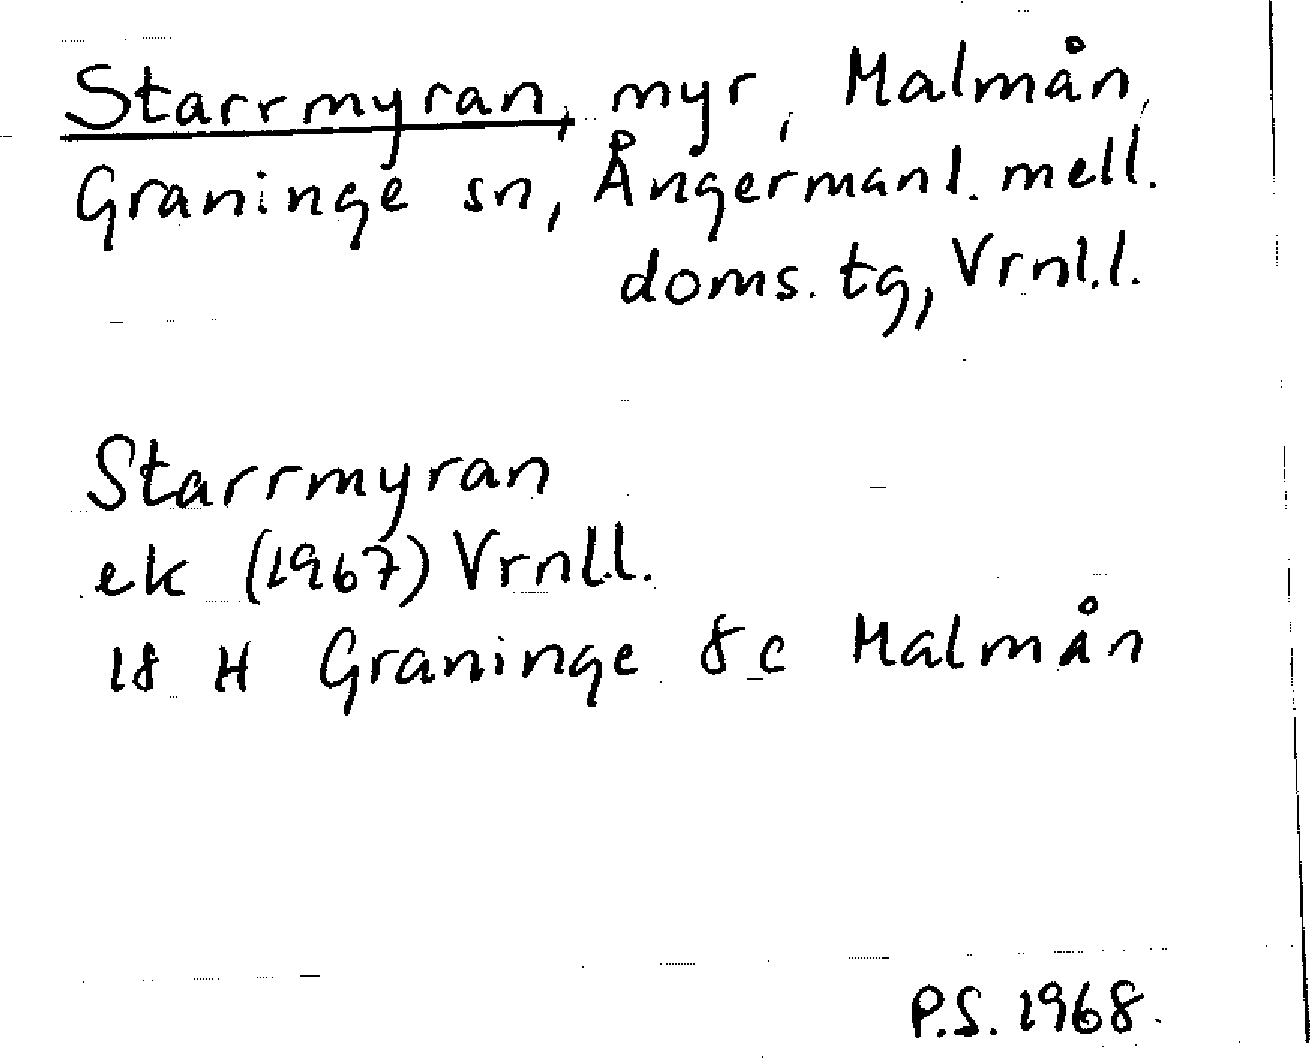 Starrmyran, myr, Malmån,
Graninge sn, Ångermanl. mell.
doms. tg, Vrnl.l.
Starrmyran
ek (1967) Vrnll.
18 H Graninge 8 c Malmån
P.S. 1968.